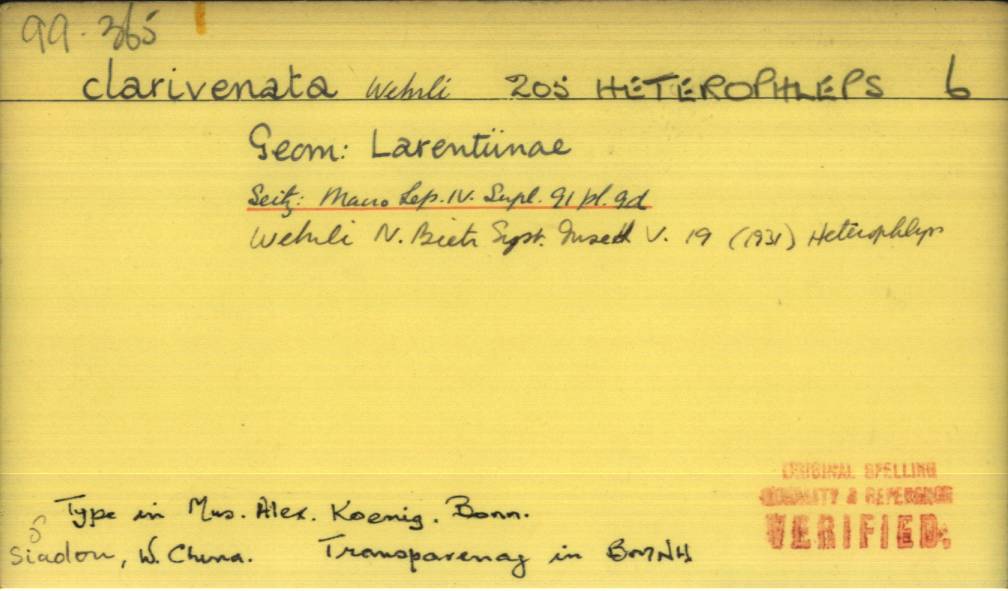 99.365
clarivenata Wehrli 205 HETEROPHLEPS 6
Geom: Larentiinae
Seitz: Macro Lep. IV. Supl. 91 pl. 9d
Wehrli N. Beitr Syst. Insect V. 19 (1931) Heterophleps
Type in Mus. Alex. Koenig. Bonn.
Siadou, W. China. Transparency in BMNH
ORIGINAL SPELLING
LOCALITY & REFERENCE
VERIFIED.